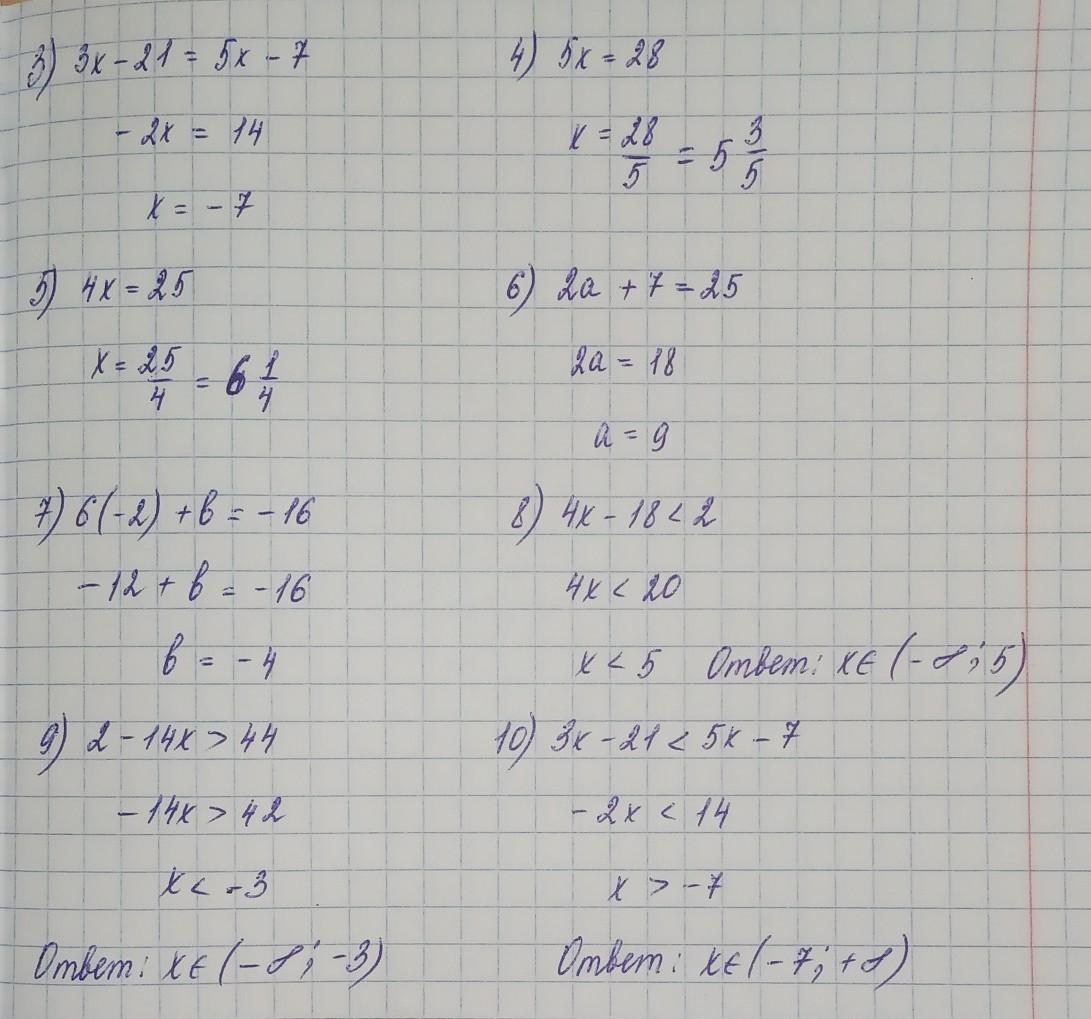 3) 3x - 21 = 5x - 7
- 2x = 14
x = - 7
4) 5x = 28
x = 28/5 = 5 3/5
5) 4x = 25
x = 25/4 = 6 1/4
6) 2a + 7 = 25
2a = 18
a = 9
7) 6(-2) + b = -16
-12 + b = -16
b = - 4
8) 4x - 18 < 2
4x < 20
x < 5 Ответ: x∈ (-∞; 5)
9) 2 - 14x > 44
- 14x > 42
x < -3
Ответ: x∈ (-∞; -3)
10) 3x - 21 < 5x - 7
- 2x < 14
x > -7
Ответ: x∈ (-7; +∞)